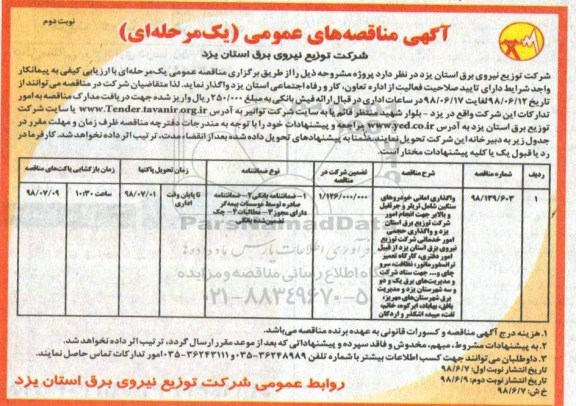 نوبت دوم
آگهی مناقصه‌های عمومی (یک‌مرحله‌ای)
شرکت توزیع نیروی برق استان یزد
شرکت توزیع نیروی برق استان یزد در نظر دارد پروژه مشروحه ذیل را از طریق برگزاری مناقصه عمومی یک‌مرحله‌ای با ارزیابی کیفی به پیمانکار
واجد شرایط دارای تایید صلاحیت فعالیت از اداره تعاون، کار و رفاه اجتماعی استان یزد واگذار نماید. لذا متقاضیان شرکت در مناقصه می‌توانند از
تاریخ ۹۸/۰۶/۱۲ لغایت ۹۸/۰۶/۱۷ در ساعات اداری در قبال ارائه فیش بانکی به مبلغ ۲۵۰/۰۰۰ ریال واریز شده جهت دریافت مدارک مناقصه به امور
تدارکات این شرکت واقع در یزد - بلوار شهید منتظر قائم یا به سایت شرکت توانیر به آدرس www.Tender.tavanir.org.ir یا سایت شرکت
توزیع برق استان یزد به آدرس www.yed.co.ir مراجعه و پیشنهادات خود را با توجه به مندرجات دفترچه مناقصه ظرف زمان و مهلت مقرر در
جدول زیر به دبیرخانه این شرکت تحویل نمایند. ضمنا به پیشنهادهای تحویل داده شده بعد از انقضاء مدت، ترتیب اثر داده نخواهد شد. کارفرما در
رد یا قبول یک یا کلیه پیشنهادات مختار است.
ردیف
شماره مناقصه
شرح مناقصه
تضمین شرکت در مناقصه
نوع ضمانتنامه
زمان تحویل پاکتها
زمان بازگشایی پاکت‌های مناقصه
۱
۹۸/۱۳۹/۶۰۳
واگذاری امانی خودروهای
سنگین شامل تریلر و جرثقیل
و بالابر جهت انجام امور
شرکت توزیع برق استان
یزد و واگذاری حجمی
امور خدماتی شرکت توزیع
نیروی برق استان یزد از قبیل
امور دفتری، کارگاه تعمیر
ترانسفورماتور، نظافت، سرو
چای و... جهت ستاد شرکت
و مدیریت‌های برق یک و دو
و سه شهرستان یزد و مدیریت
برق شهرستان‌های مهریز،
بافق، بهاباد، ابرکوه، خاتم،
تفت، میبد، اشکذر و اردکان
۱/۱۲۶/۰۰۰/۰۰۰
۱- ضمانتنامه بانکی ۲- ضمانتنامه
صادره توسط موسسات بیمه‌گر
دارای مجوز ۳- مطالبات ۴- چک
تضمین شده بانکی
تا پایان وقت اداری
۹۸/۰۷/۰۱
ساعت ۱۰:۳۰
۹۸/۰۷/۰۹
پایگاه اطلاع رسانی مناقصه و مزایده
۰۲۱-۸۸۳۴۹۶۷۰-۵
۱. هزینه درج آگهی مناقصه و کسورات قانونی به عهده برنده مناقصه می‌باشد.
۲. به پیشنهادات مشروط، مبهم، مخدوش و فاقد سپرده و پیشنهاداتی که بعد از موعد مقرر ارسال گردد، ترتیب اثر داده نخواهد شد.
۳. داوطلبان می‌توانند جهت کسب اطلاعات بیشتر با شماره تلفن ۳۶۲۴۸۹۸۹-۰۳۵ و ۳۶۲۴۳۱۱۱-۰۳۵ امور تدارکات تماس حاصل نمایند.
تاریخ انتشار نوبت اول: ۹۸/۶/۷
تاریخ انتشار نوبت دوم: ۹۸/۶/۹
خ ش: ۹۸/۶/۷
روابط عمومی شرکت توزیع نیروی برق استان یزد